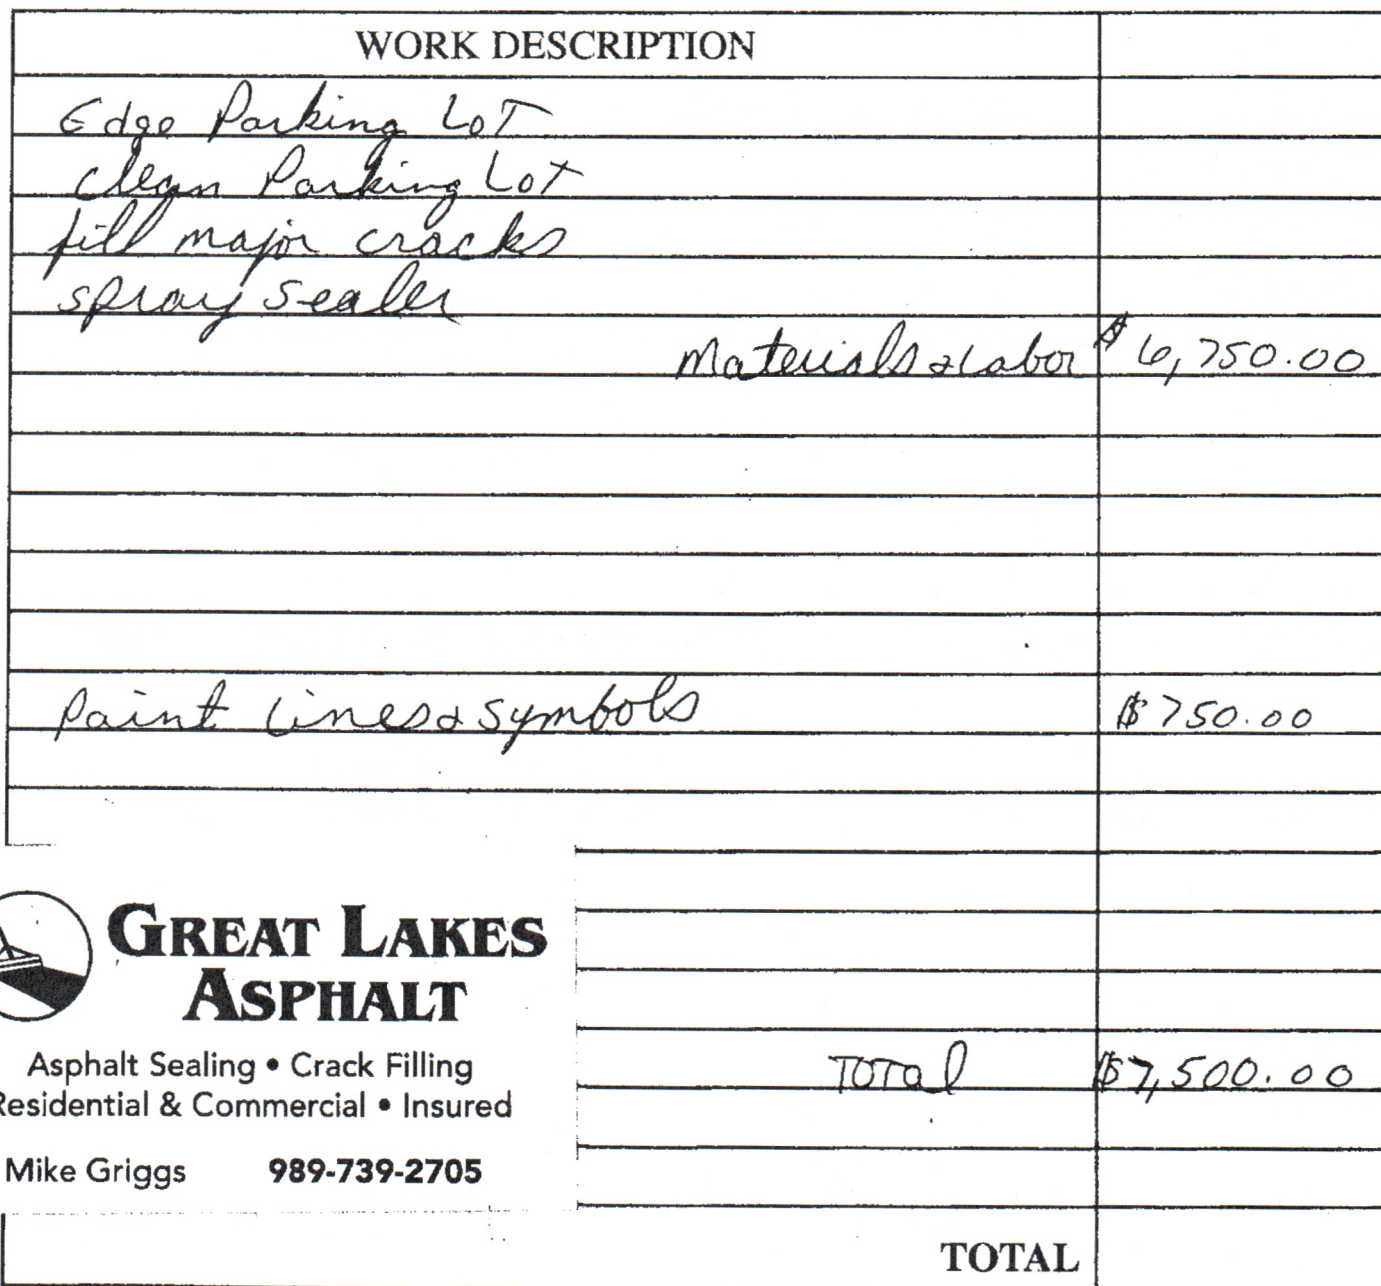 WORK DESCRIPTION
Edge Parking Lot
clean Parking Lot
fill major cracks
spray sealer
Materials & Labor $ 6,750.00
Paint Lines & Symbols $750.00
GREAT LAKES
ASPHALT
Asphalt Sealing • Crack Filling
Residential & Commercial • Insured
Mike Griggs 989-739-2705
Total $7,500.00
TOTAL